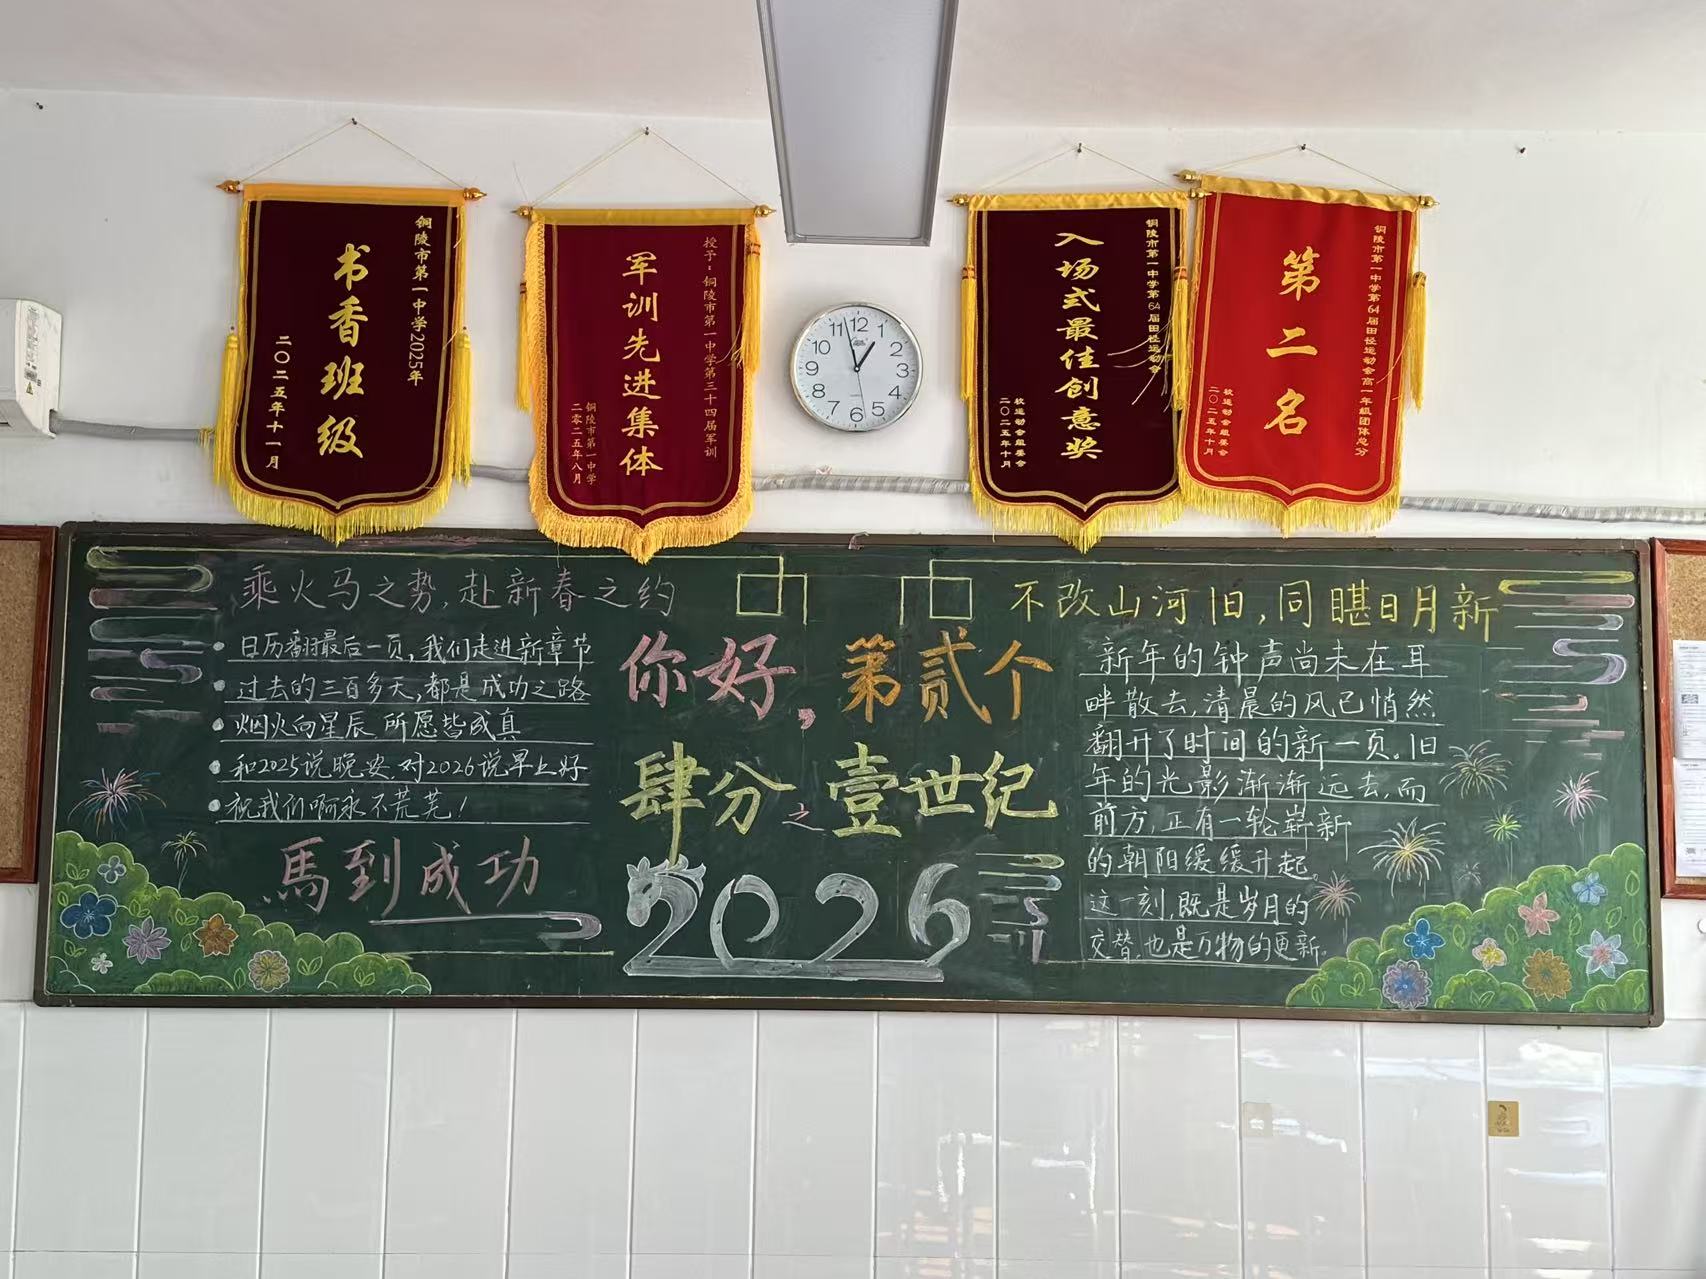 铜陵市第一中学2025年
书香班级
二〇二五年十一月
授予：铜陵市第一中学第三十四届军训
军训先进集体
铜陵市第一中学
二零二五年八月
铜陵市第一中学第64届田径运动会
入场式最佳创意奖
校运动会组委会
二〇二五年十月
铜陵市第一中学第64届田径运动会高一年级团体总分
第二名
校运动会组委会
二〇二五年十月
12
1
2
3
4
5
6
7
8
9
10
11
乘火马之势,赴新春之约
日历翻最后一页,我们走进新章节
过去的三百多天,都是成功之路
烟火向星辰 所愿皆成真
和2025说晚安,对2026说早上好
祝我们啊永不荒芜!
馬到成功
你好,第贰个
肆分之壹世纪
2026
不改山河旧,同瞻日月新
新年的钟声尚未在耳
畔散去,清晨的风已悄然
翻开了时间的新一页。旧
年的光影渐渐远去,而
前方,正有一轮崭新
的朝阳缓缓升起。
这一刻,既是岁月的
交替,也是万物的更新。